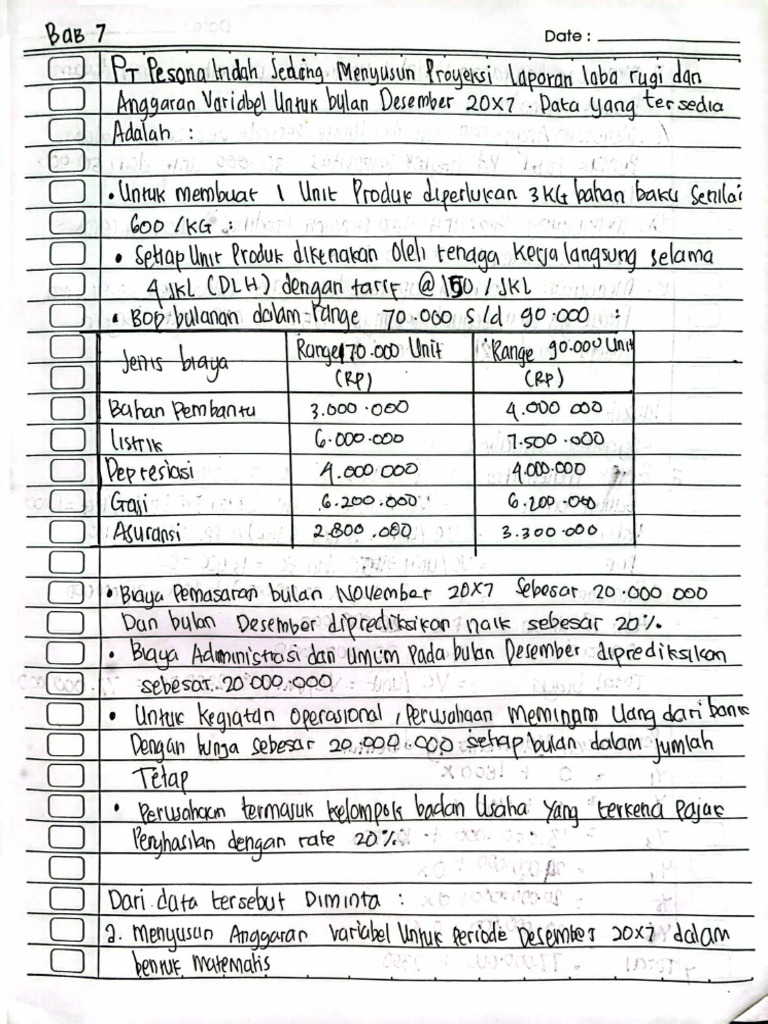 Bab 7
Date :
PT Pesona Indah Sedang Menyusun Proyeksi laporan laba rugi dan
Anggaran Variabel Untuk bulan Desember 20X7. Data yang tersedia
Adalah :
• Untuk membuat 1 Unit Produk diperlukan 3 KG bahan baku Senilai
600 /KG :
• Setiap Unit Produk dikenakan Oleh tenaga kerja langsung selama
4 JKL (DLH) dengan tarif @ 150 / JKL
• BOP bulanan dalam range 70.000 s/d 90.000 :
Jenis biaya
Range 70.000 Unit
(RP)
Range 90.000 Unit
(RP)
Bahan Pembantu 3.000.000 4.000 000
Listrik 6.000.000 7.500.000
Depresiasi 4.000.000 4.000.000
Gaji 6.200.000 6.200.000
Asuransi 2.800.000 3.300.000
• Biaya Pemasaran bulan November 20X7 Sebesar 20.000 000
Dan bulan Desember diprediksikan naik sebesar 20%.
• Biaya Administrasi dan Umum Pada bulan Desember diprediksikan
sebesar 20.000.000
• Untuk kegiatan operasional, Perusahaan Meminjam Uang dari bank
Dengan bunga sebesar 20.000.000 setiap bulan dalam Jumlah
Tetap
• Perusahaan termasuk kelompok badan Usaha Yang terkena Pajak
Penghasilan dengan rate 20%.
Dari data tersebut Diminta :
2. Menyusun Anggaran Variabel Untuk Periode Desember 20X7 dalam
bentuk Matematis